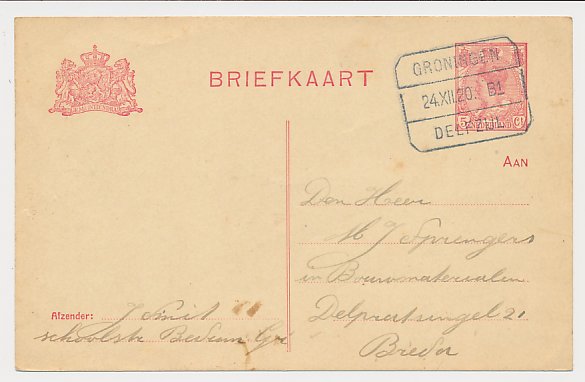 BRIEFKAART
GRONINGEN
24.XII.20. B1
DELFZIJL
5 NEDERLAND Ct
AAN
Den Heer
M J Sprengers
in Bouwmaterialen
Delpratsingel 21
Breda
Afzender: J Smit
schoolstr Bedum Gr